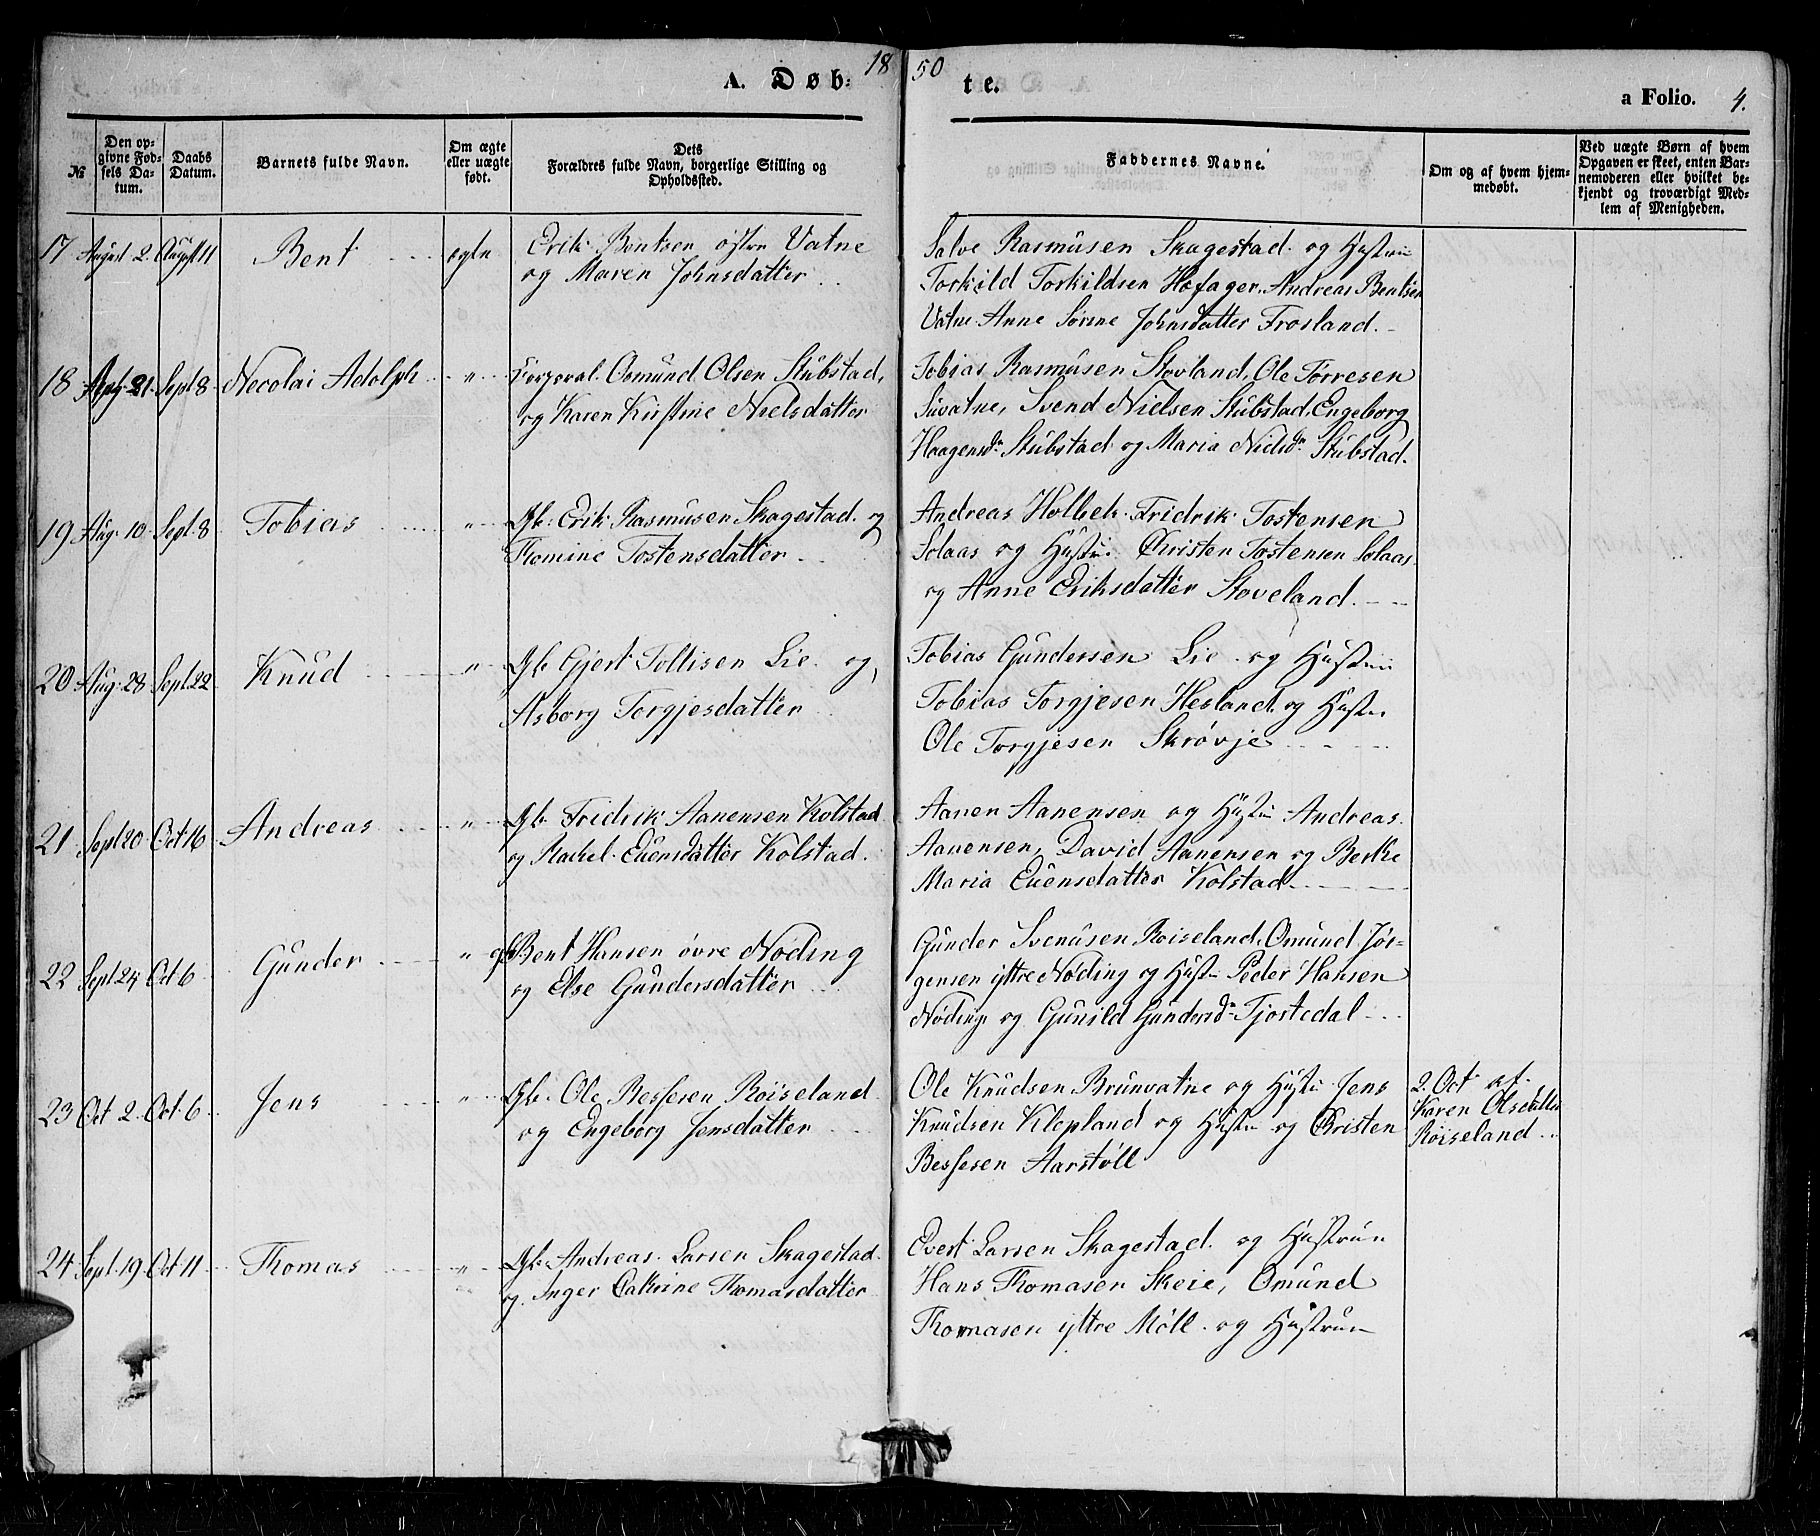 A. Døb: 18 50 te.
a Folio. 4.
№
Den op-
givne Fød-
sels Da-
tum.
Daabs
Datum.
Barnets fulde Navn.
Om ægte
eller uægte
født.
Dets
Forældres fulde Navn, borgerlige Stilling og
Opholdssted.
Faddernes Navne.
Om og af hvem hjem-
medøbt.
Ved uægte Børn af hvem
Opgaven er skeet, enten Bar-
nemoderen eller hvilket be-
kjendt og troværdigt Med-
lem af Menigheden.
17 August 2. August 11 Bent ægte Erik Bentsen østre Vatne
og Maren Johnsdatter
Salve Rasmusen Skagestad og Hustru
Torkild Torkildsen Høfager. Andreas Bentsen
Vatne Anne Sørine Johnsdatter Frøsland.
18 Aug. 21. Sept 8 Necolai Adolph " Corporal Osmund Olsen Stubstad,
og Karen Kirstine Nielsdatter
Tobias Rasmusen Stovland, Ole Tørresen
Suvatne, Svend Nielsen Stubstad, Engeborg
Haagensdr Stubstad og Maria Nielsdr Stubstad.
19 Aug. 10. Sept. 8 Tobias " Gb. Erik Rasmusen Skagestad og
Thomine Tostensdatter
Andreas Holbek. Fridrik Tostensen
Solaas og Hustru Christen Tostensen Solaas
og Anne Eriksdatter Stoveland.
20 Aug. 28 Sept. 22 Knud " Gb Gjert Tollisen Lie og,
Asborg Torgjesdatter
Tobias Gundersen Lie og Hustru
Tobias Torgjesen Hesland og Hustru
Ole Torgjesen Skrøvje
21 Sept 20 Oct 16 Andreas " Gb Fridrik Aanensen Kolstad
og Rachel Evensdatter Kolstad.
Aanen Aanensen og Hustru Andreas
Aanensen, David Aanensen og Berthe
Maria Evensdatter Kolstad
22 Sept 24 Oct 6 Gunder " gb Bent Hansen øvre Nøding
og Else Gundersdatter
Gunder Svenusen Roiseland, Omund Jør-
gensen yttre Nøding og Hustru Peder Hansen
Nøding og Gunild Gundersdr Tjostedal
23 Oct 2. Oct. 6 Jens " Gb. Ole Bessesen Røiseland
og Engeborg Jensdatter
Ole Knudsen Brunvatne og Hustru Jens
Knudsen Klepland og Hustru og Christen
Bessesen Aarstøll
2. Oct af
Karen Olsdatter
Røiseland
24 Sept. 19 Oct 11 Thomas " Gb. Andreas Larsen Skagestad
og Inger Catrine Thomasdatter
Evert Larsen Skagestad og Hustrun
Hans Thomasen Skeie, Omund
Thomasen yttre Møll og Hustrun